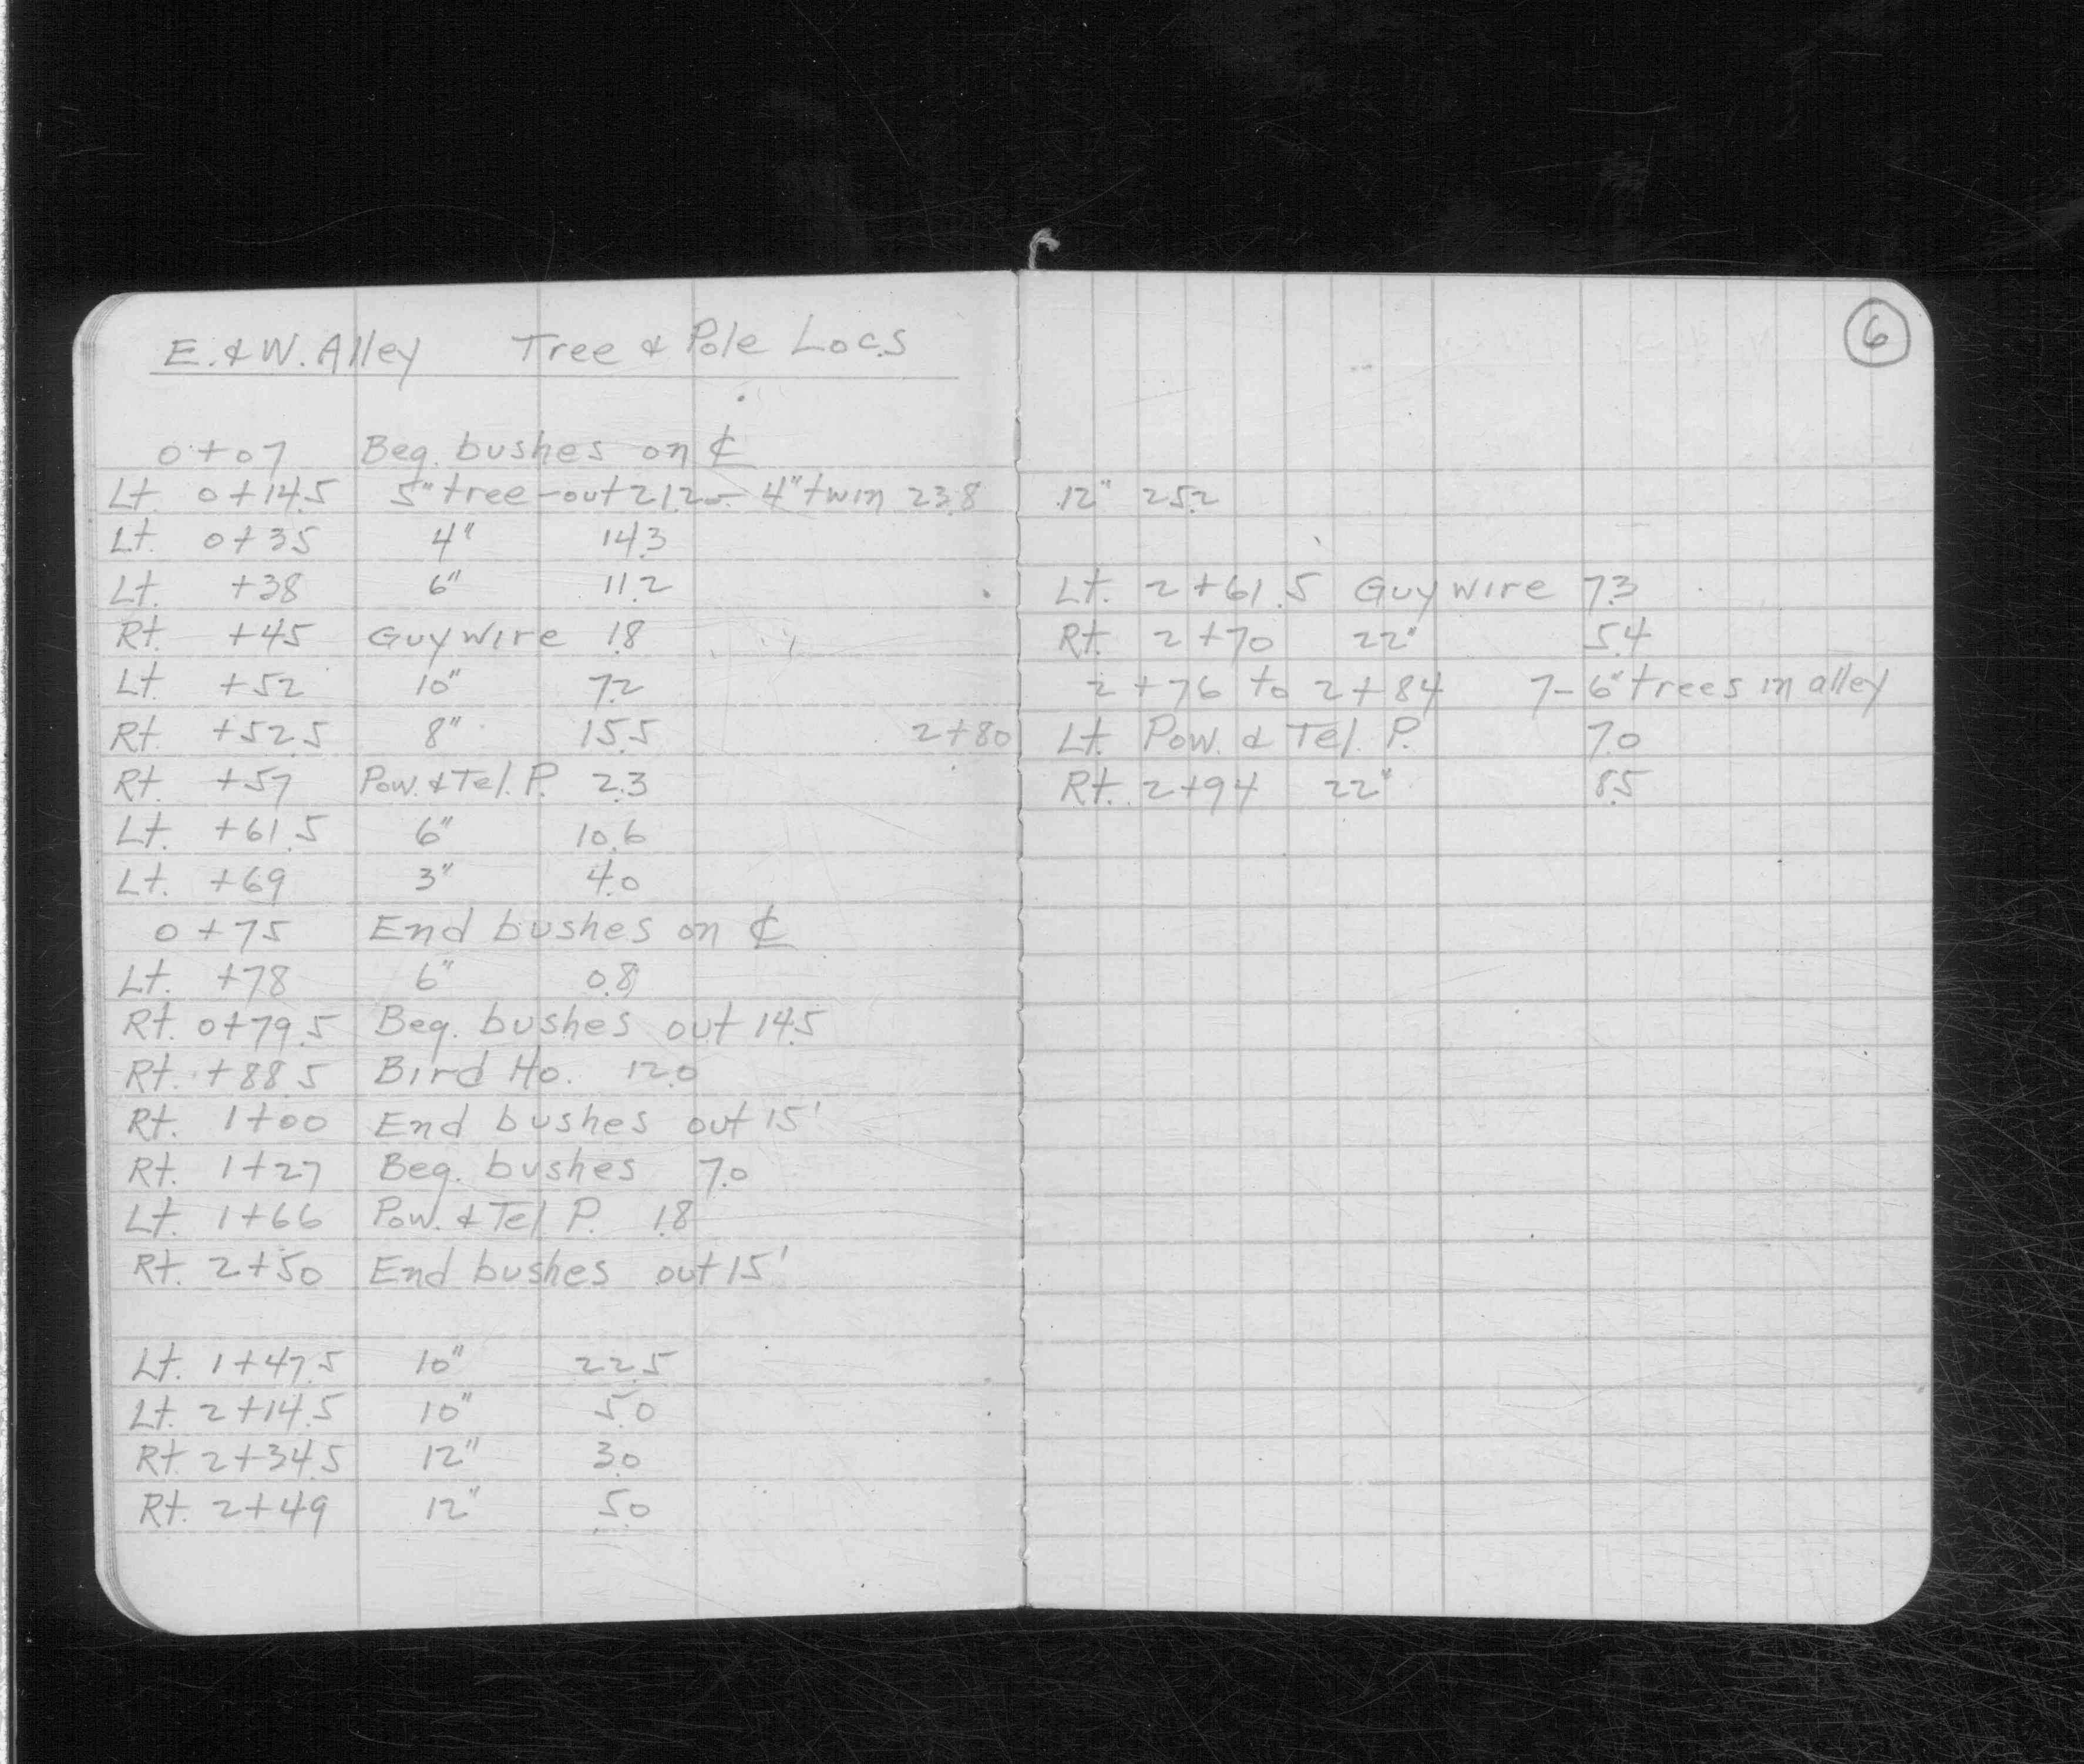 E. & W. Alley Tree & Pole Locs
0+07 Beg. bushes on ℄
Lt. 0+14.5 5" tree - out 21.2 - 4" twin 23.8
Lt. 0+35 4" 14.3
Lt. +38 6" 11.2
Rt. +45 Guy wire 1.8
Lt. +52 10" 7.2
Rt. +52.5 8" 15.5
Rt. +57 Pow. & Tel. P. 2.3
Lt. +61.5 6" 10.6
Lt. +69 3" 4.0
0+75 End bushes on ℄
Lt. +78 6" 0.8
Rt. 0+79.5 Beg. bushes out 14.5
Rt. +88.5 Bird Ho. 12.0
Rt. 1+00 End bushes out 15'
Rt. 1+27 Beg. bushes 7.0
Lt. 1+66 Pow. & Tel P. 1.8
Rt. 2+50 End bushes out 15'
Lt. 1+47.5 10" 22.5
Lt. 2+14.5 10" 5.0
Rt. 2+34.5 12" 3.0
Rt. 2+49 12" 5.0
6
12" 25.2
Lt. 2+61.5 Guy wire 7.3
Rt. 2+70 22" 5.4
2+76 to 2+84 7-6" trees in alley
2+80 Lt. Pow. & Tel. P. 7.0
Rt. 2+94 22" 8.5